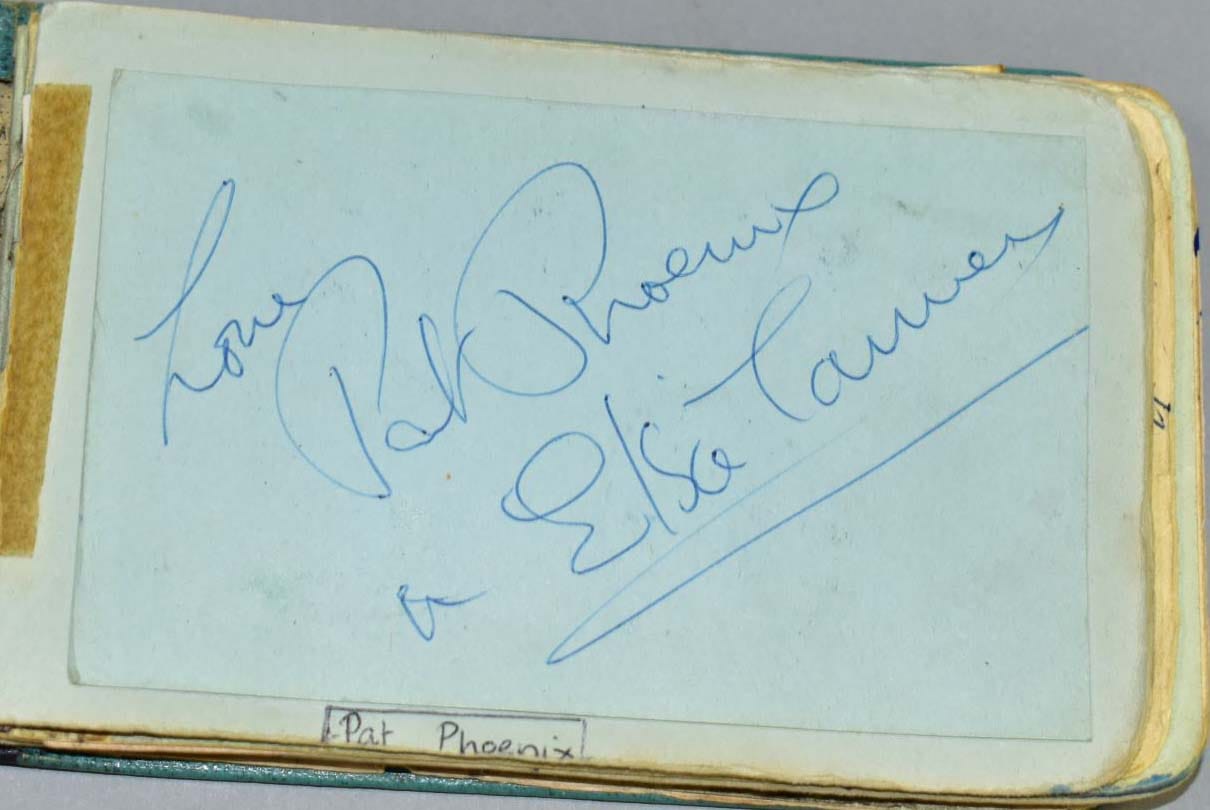 Love Pat Phoenix
or Elsie Tanner
Pat Phoenix